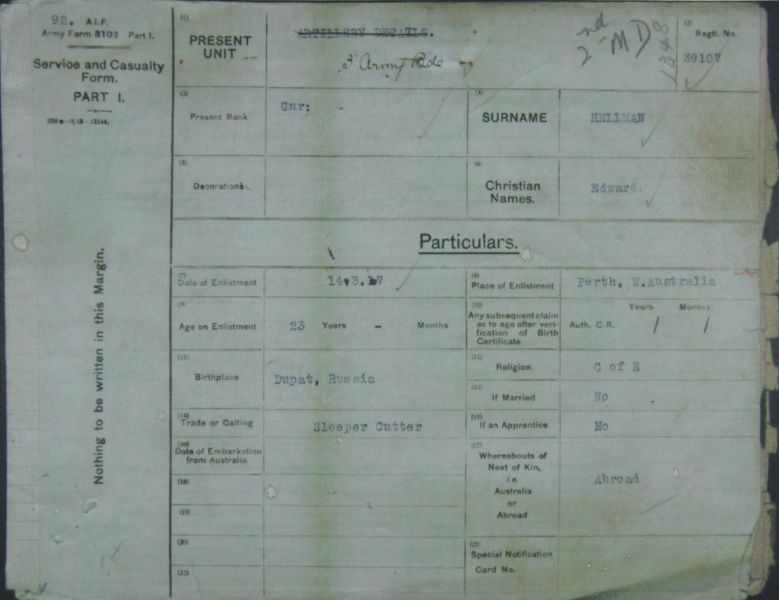 92. A.I.F.
Army Form B103 Part I.
Service and Casualty
Form.
PART I.
Nothing to be written in this Margin.
(1)
PRESENT
UNIT
ARTILLERY DETAILS.
3 Army Bde
2nd MD
1348
(2)
Regtl. No.
39107
(3)
Present Rank
Gnr:
(4)
SURNAME
HELLMAN
(5)
Decorations
(6)
Christian
Names.
Edward
Particulars.
(7)
Date of Enlistment
14.3.17
(8)
Place of Enlistment
Perth, W.Australia
(9)
Age on Enlistment
23 Years - Months
(10)
Any subsequent claim
as to age after veri-
fication of Birth
Certificate
Years Months
Auth. C.R. / /
(11)
Birthplace
Dupat, Russia
(12)
Religion
C of E
(13)
If Married
No
(14)
Trade or Calling
Sleeper Cutter
(15)
If an Apprentice
No
(16)
Date of Embarkation
from Australia
(17)
Whereabouts of
Next of Kin,
i.e.
Australia
or
Abroad
Abroad
(18)
(19)
(20)
(21)
Special Notification
Card No.
(22)